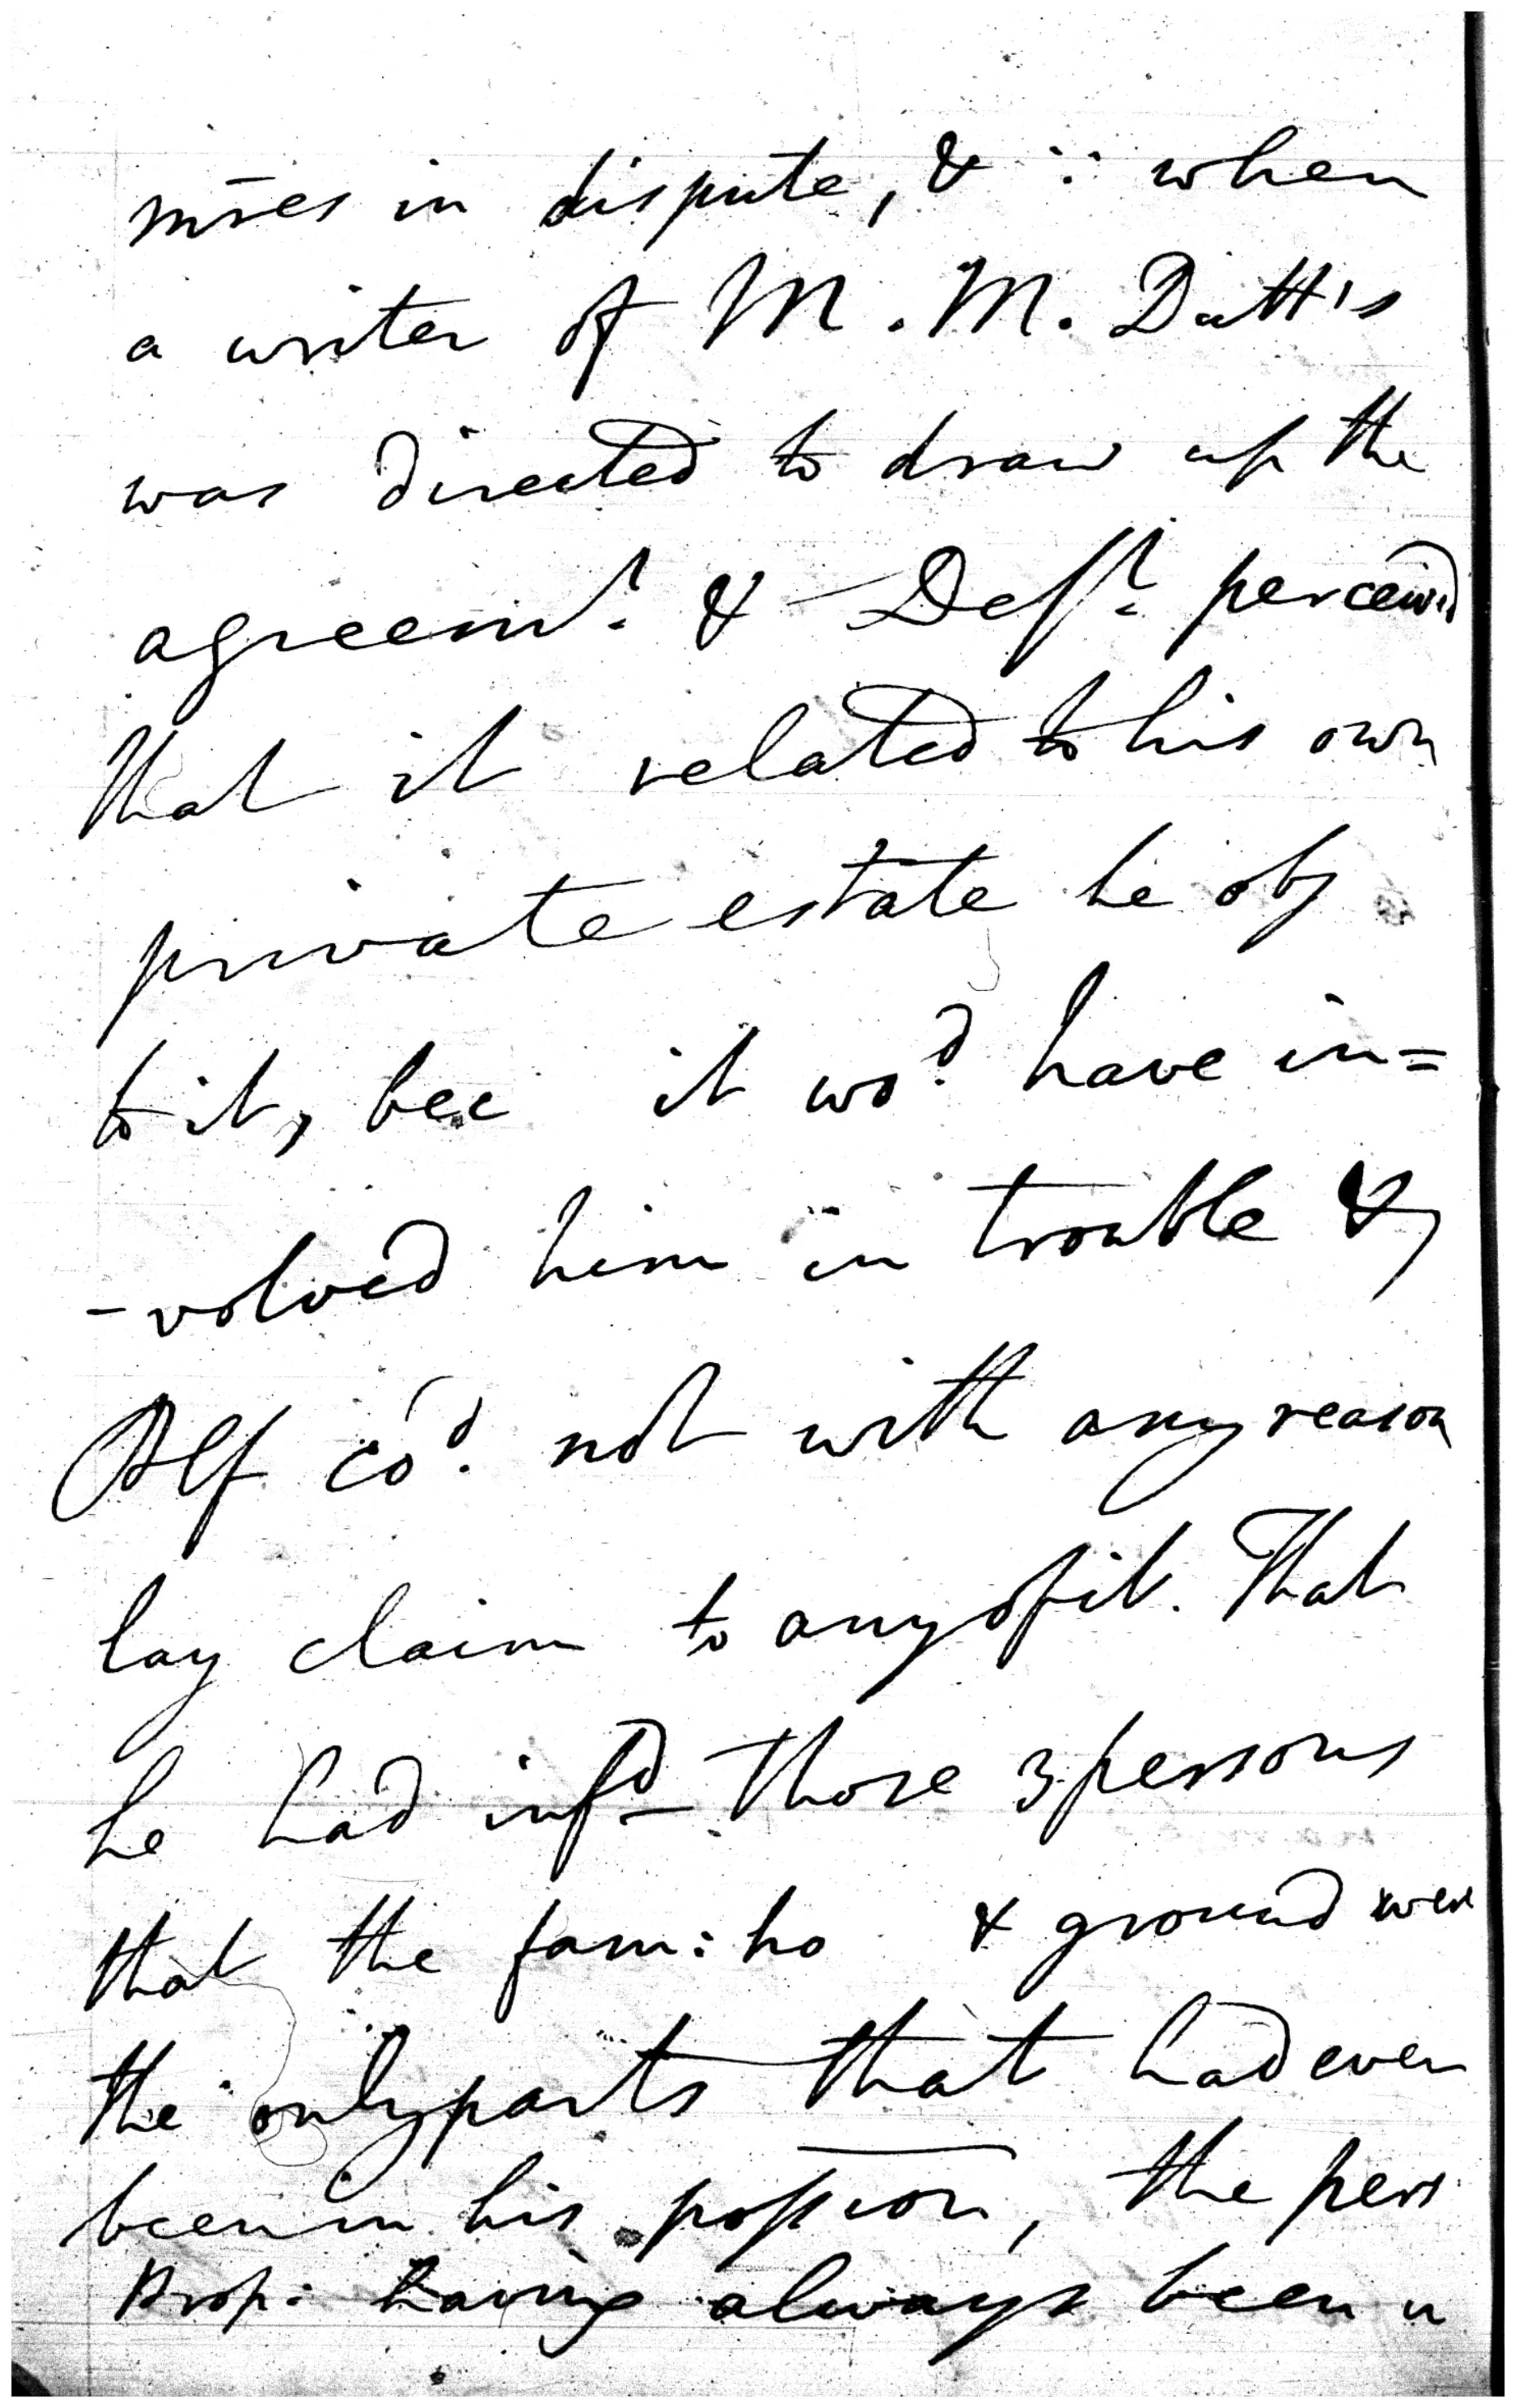 mres in dispute, & ∵ when
a writer of M. M. Dutt's
was directed to draw up the
agreemt. & Deft. perceivd
that it related to his own
private estate he obj
to it, bec it wod. have in=
-volved him in trouble &
Plf cod. not with any reason
lay claim to any of it. That
he had infd those 3 persons
that the fam: ho & ground were
the only parts that had ever
been in his possion, the pers
Prop: having always been